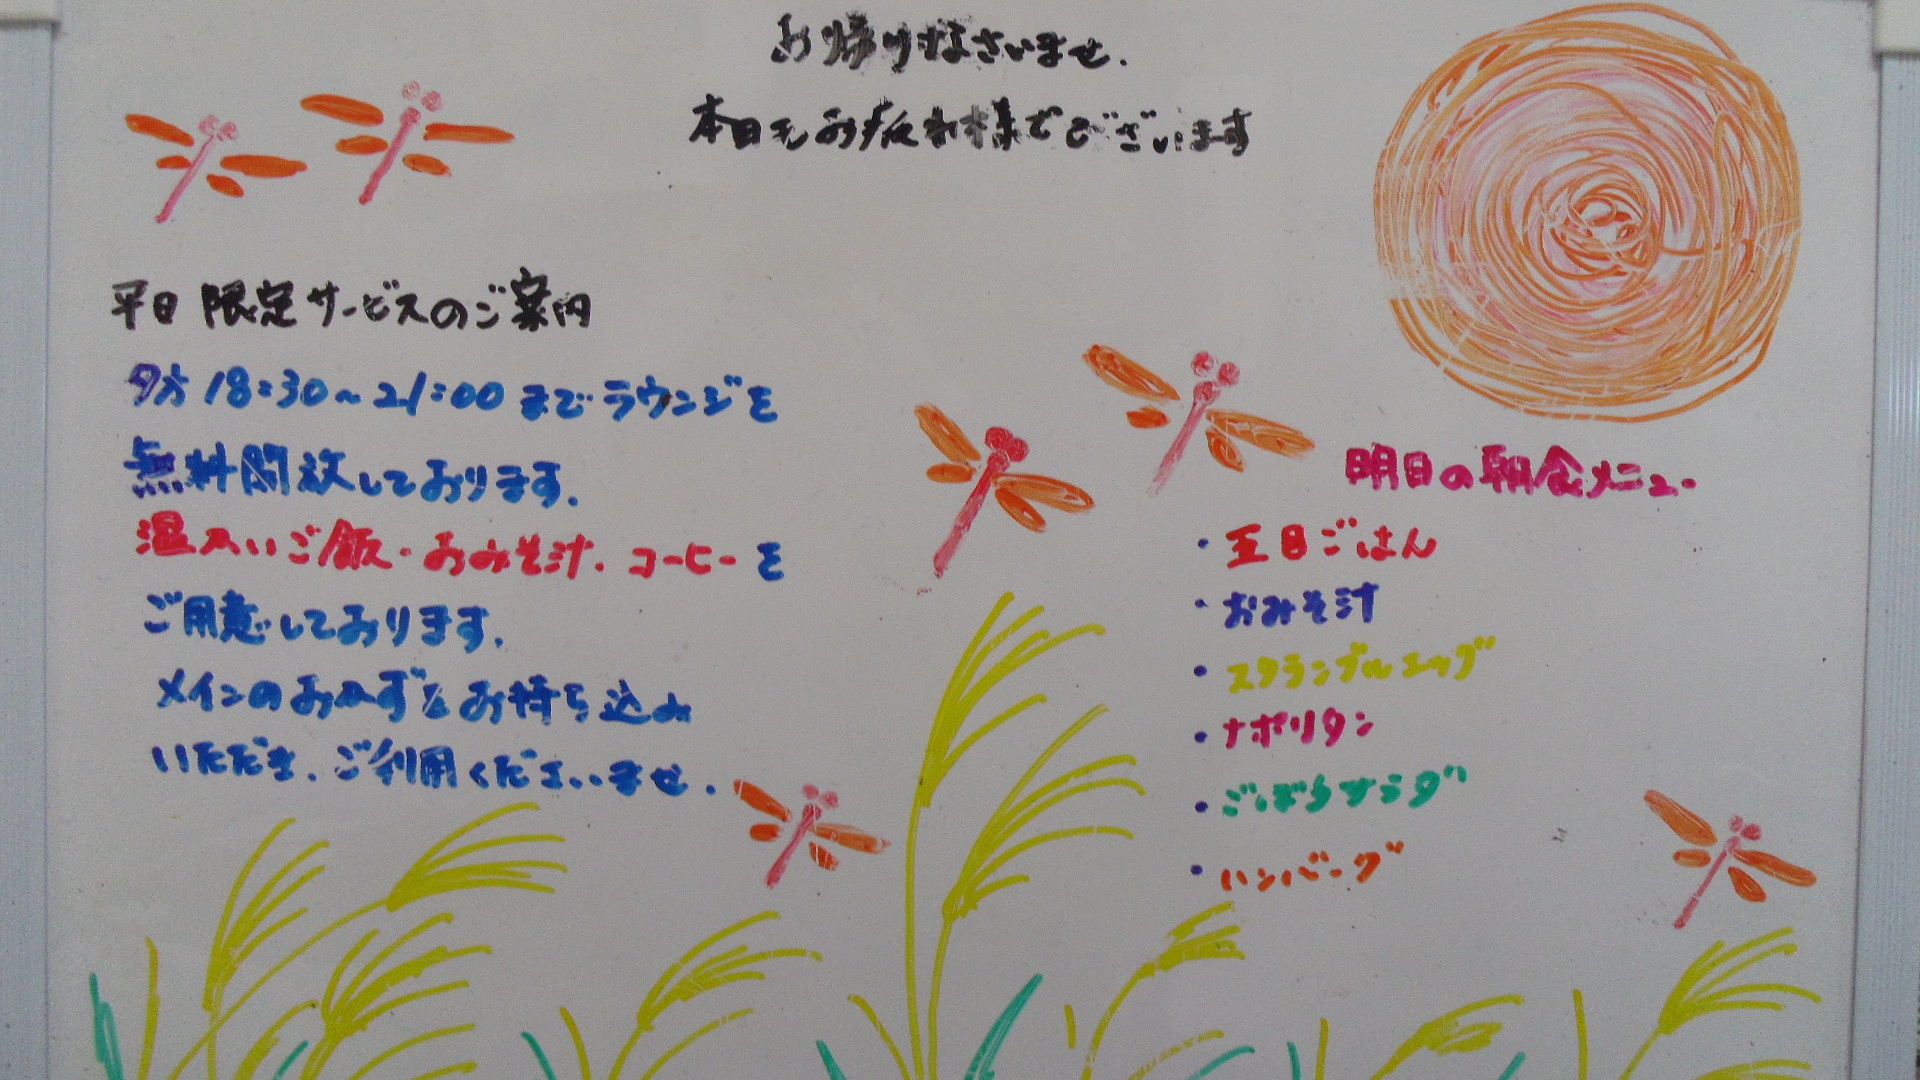 お帰りなさいませ.
本日もお疲れ様でございます
平日限定サービスのご案内
夕方18:30～21:00までラウンジを
無料開放しております.
温かいご飯・おみそ汁.コーヒーを
ご用意しております.
メインのおかずをお持ち込み
いただき.ご利用くださいませ.
明日の朝食メニュー
・五目ごはん
・おみそ汁
・スクランブルエッグ
・ナポリタン
・ごぼうサラダ
・ハンバーグ